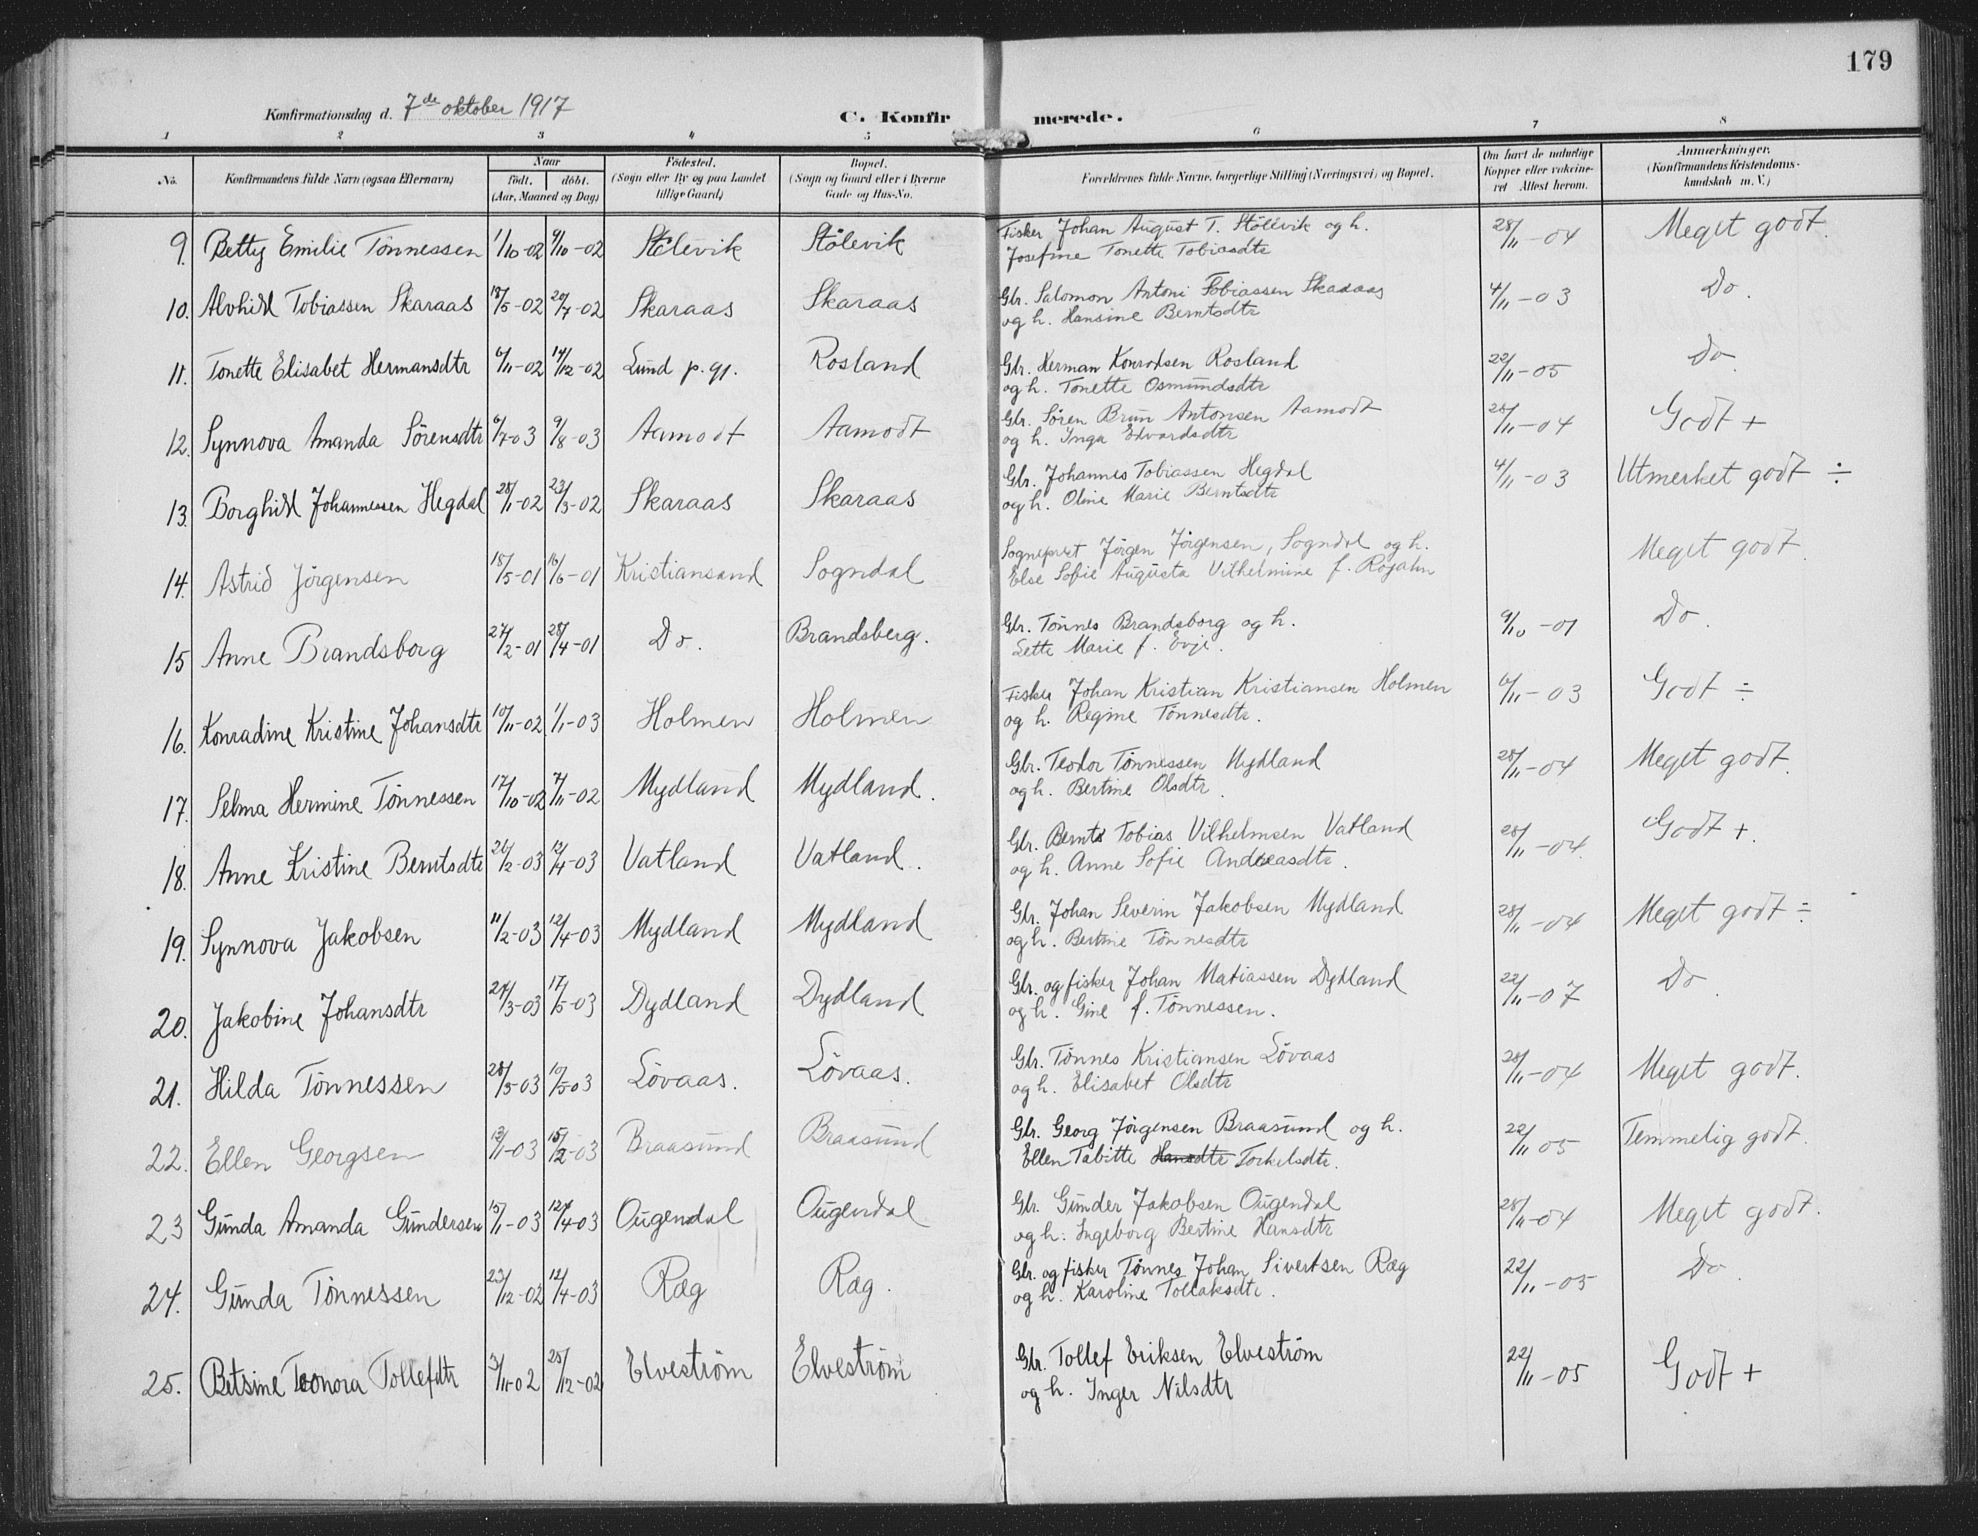 179
Konfirmationsdag d. 7de oktober 1917 C. Konfirmerede.
1 2 3 4 5 6 7 8
No. Konfirmandens fulde Navn (ogsaa Efternavn) Naar født. døbt. (Aar, Maaned og Dag) Fødested. (Sogn eller By og paa Landet tillige Gaard) Bopæl. (Sogn og Gaard eller i Byerne Gade og Hus-No. Forældrenes fulde Navne, borgerlige Stilling (Næringsvei) og Bopæl. Om havt de naturlige Kopper eller vakcineret Attest herom. Anmærkninger. (Konfirmandens Kristendomskundskab m. V.)
9. Betty Emilie Tønnessen 1/10-02 9/10-02 Stölevik Stölevik Fisker Johan August T. Stölevik og h. 28/11-04 Meget godt.
Josefine Tonette Tobiasdtr
10. Alvhild Tobiassen Skaraas 18/5-02 20/7-02 Skaraas Skaraas Gbr. Salomon Antoni Tobiassen Skaraas 4/11-03 Do.
og h. Hansine Berntsdtr
11. Tonette Elisabet Hermansdtr 6/11-02 14/12-02 Lund p.gj. Rosland Gbr. Herman Konradsen Rosland 22/11-05 Do
og h. Tonette Osmundsdtr
12. Synnova Amanda Sörensdtr 6/7-03 9/8-03 Aamodt Aamodt Gbr. Sören Brun Antonsen Aamodt 28/11-04 Godt +
og h. Inga Edvardsdtr
13. Borghild Johannessen Hegdal 28/1-02 23/3-02 Skaraas Skaraas Gbr. Johannes Tobiassen Hegdal 4/11-03 Utmerket godt ÷
og h. Oline Marie Berntsdtr
14. Astrid Jörgensen 18/5-01 16/6-01 Kristiansand Sogndal Sogneprest Jörgen Jörgensen, Sogndal og h. Meget godt.
Else Sofie Augusta Vilhelmine f. Rojahn
15 Anne Brandsborg 27/2-01 28/4-01 Do. Brandsberg. Gbr. Tönnes Brandsborg og h. 9/10-01 Do.
Lette Marie f. Evje.
16. Konradine Kristine Johansdtr 10/11-02 1/1-03 Holmen Holmen Fisker Johan Kristian Kristiansen Holmen 6/11-03 Godt ÷
og h. Regine Tönnesdtr.
17. Selma Hermine Tönnessen 17/10-02 7/11-02 Mydland Mydland. Gbr. Teodor Tönnessen Mydland 28/11-04 Meget godt.
og h. Bertine Olsdtr.
18. Anne Kristine Berntsdtr 26/2-03 12/4-03 Vatland Vatland. Gbr. Bernt Tobias Vilhelmsen Vatland 28/11-04. Godt +.
og h. Anne Sofie Andreasdtr.
19. Synnova Jakobsen 11/2-03 12/4-03 Mydland Mydland Gbr. Johan Severin Jakobsen Mydland 28/11-04 Meget godt ÷
og h. Bertine Tönnesdtr
20. Jakobine Johansdtr 24/3-03 17/5-03 Dydland Dydland Gbr. og fisker Johan Matiassen Dydland 22/11-07 Do.
og h. Gine f. Tönnessen.
21. Hilda Tönnessen 28/3-03 10/5-03 Lövaas. Lövaas. Gbr. Tönnes Kristiansen Lövaas 28/11-04 Meget godt.
og h. Elisabet Olsdtr
22. Ellen Georgsen 12/1-03 15/2-03 Braasund Braasund Gbr. Georg Jörgensen Braasund og h. 22/11 05 Temmelig godt.
Ellen Tabitte Hansdtr Torkelsdtr.
23 Gunda Amanda Gundersen 15/1-03 12/4-03 Ougendal Ougendal Gbr. Gunder Jakobsen Ougendal 28/11-04 Meget godt.
og h. Ingeborg Bertine Hansdtr
24. Gunda Tönnessen 23/12-02 12/4-03 Ræg Ræg. Gbr. og fisker Tönnes Johan Sivertsen Ræg 22/11-05 Do.
og h. Karoline Tollaksdtr.
25. Betsine Teonora Tollefdtr 3/11-02 25/12-02 Elveström Elveström Gbr. Tollef Eriksen Elveström 22/11-05 Godt +
og h. Inger Nilsdtr